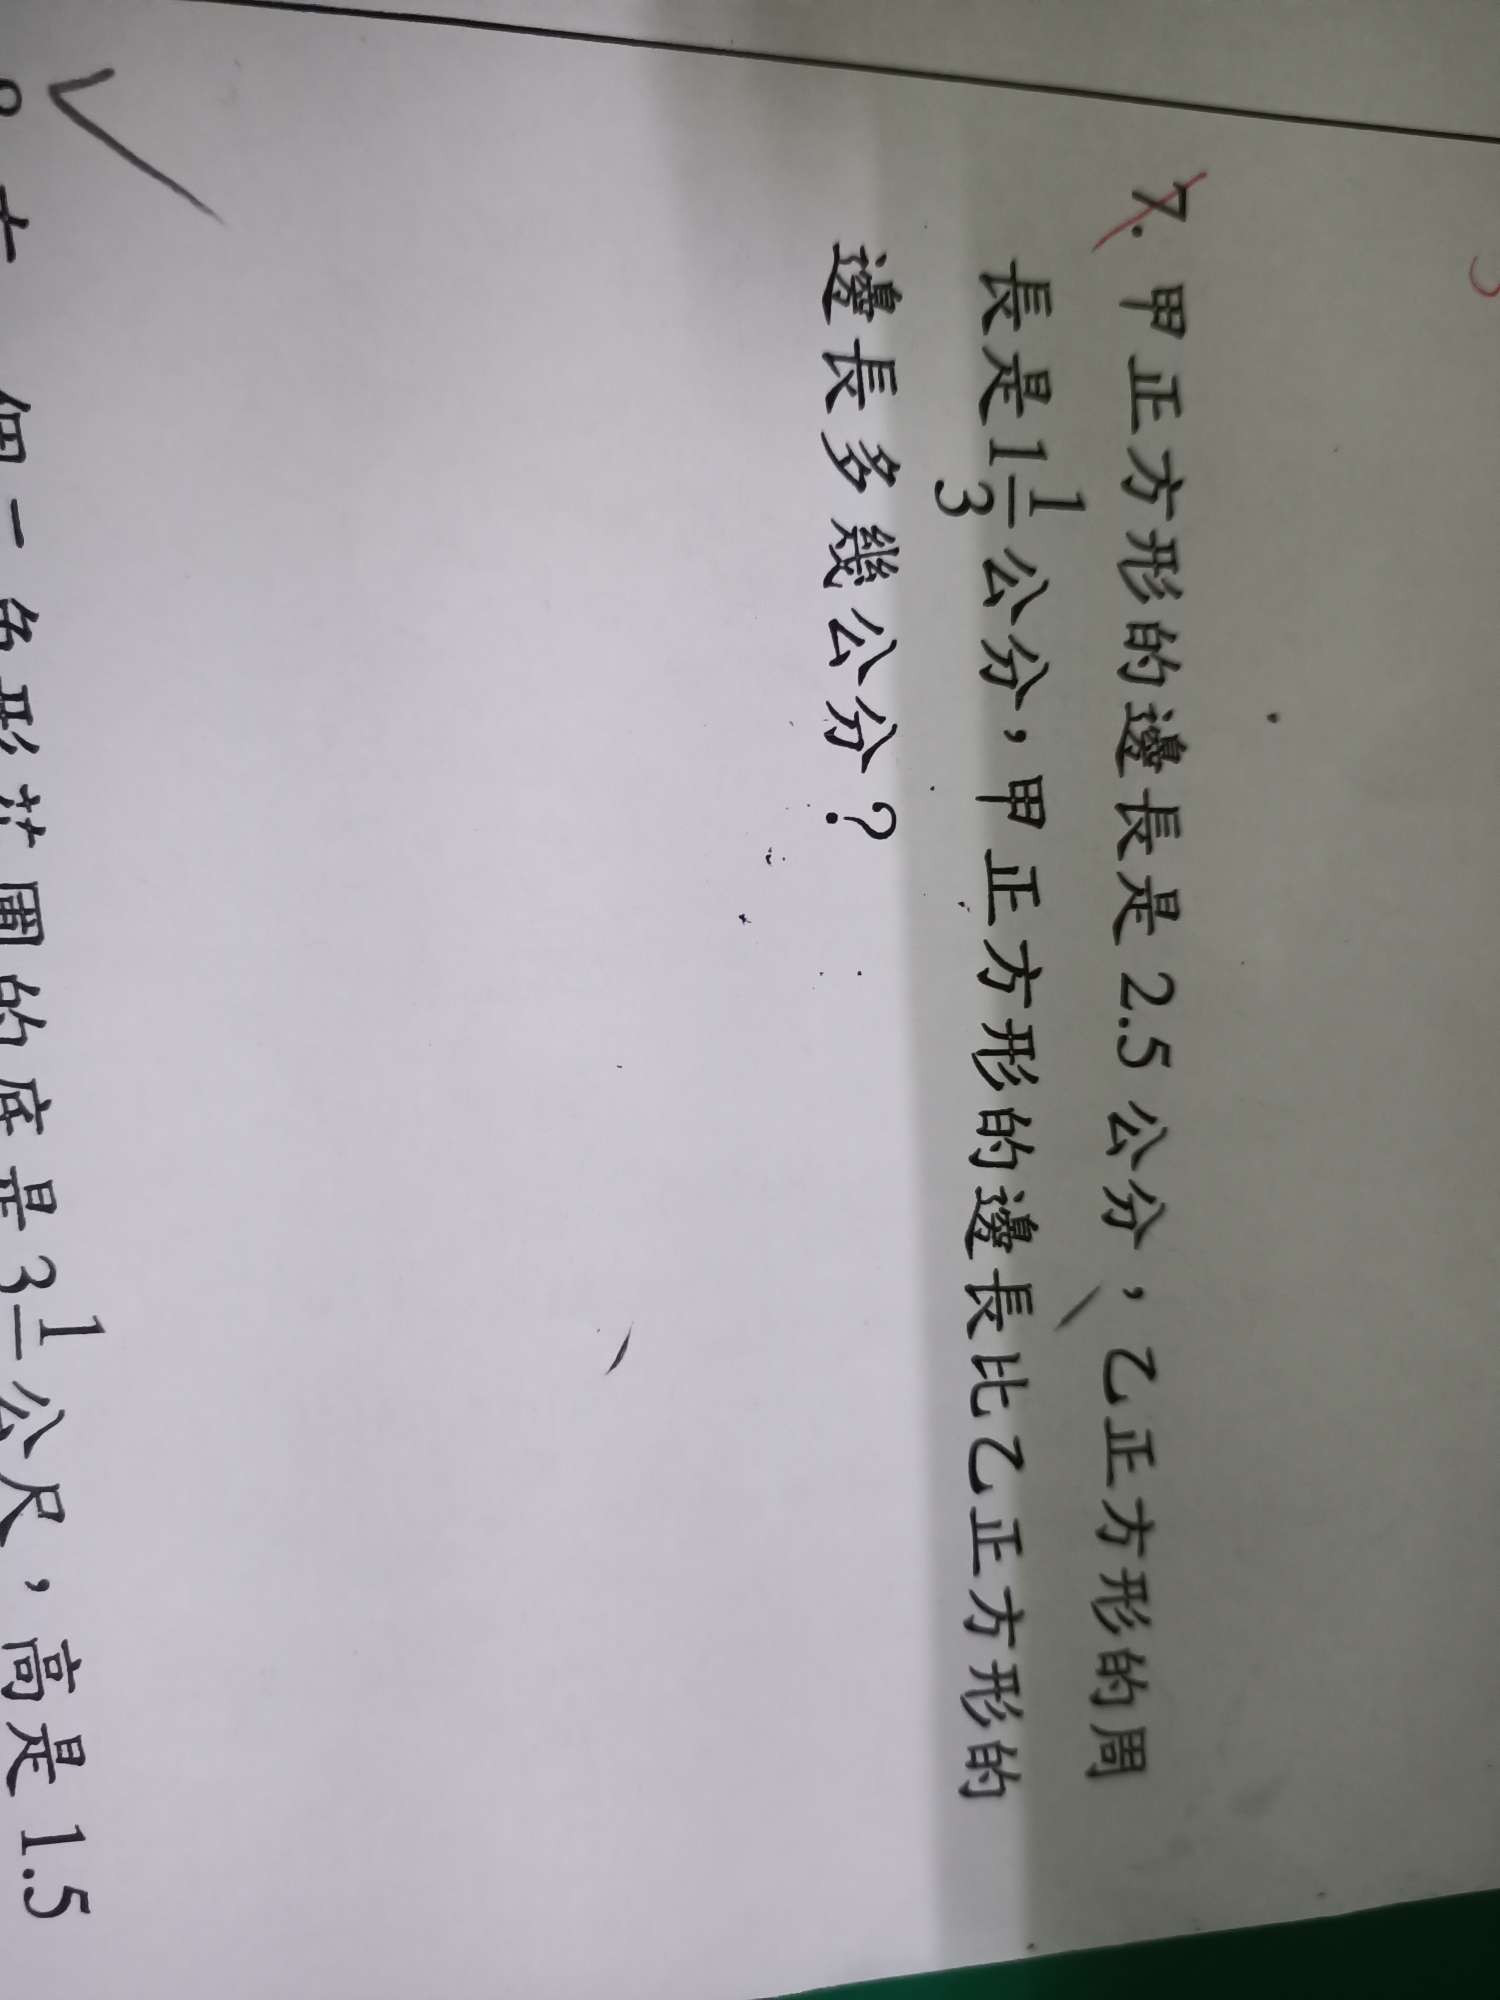 7. 甲正方形的邊長是 2.5 公分，乙正方形的周
長是1 1/3 公分，甲正方形的邊長比乙正方形的
邊長多幾公分？
個一角形花圃的底是3 1/ 公尺，高是 1.5